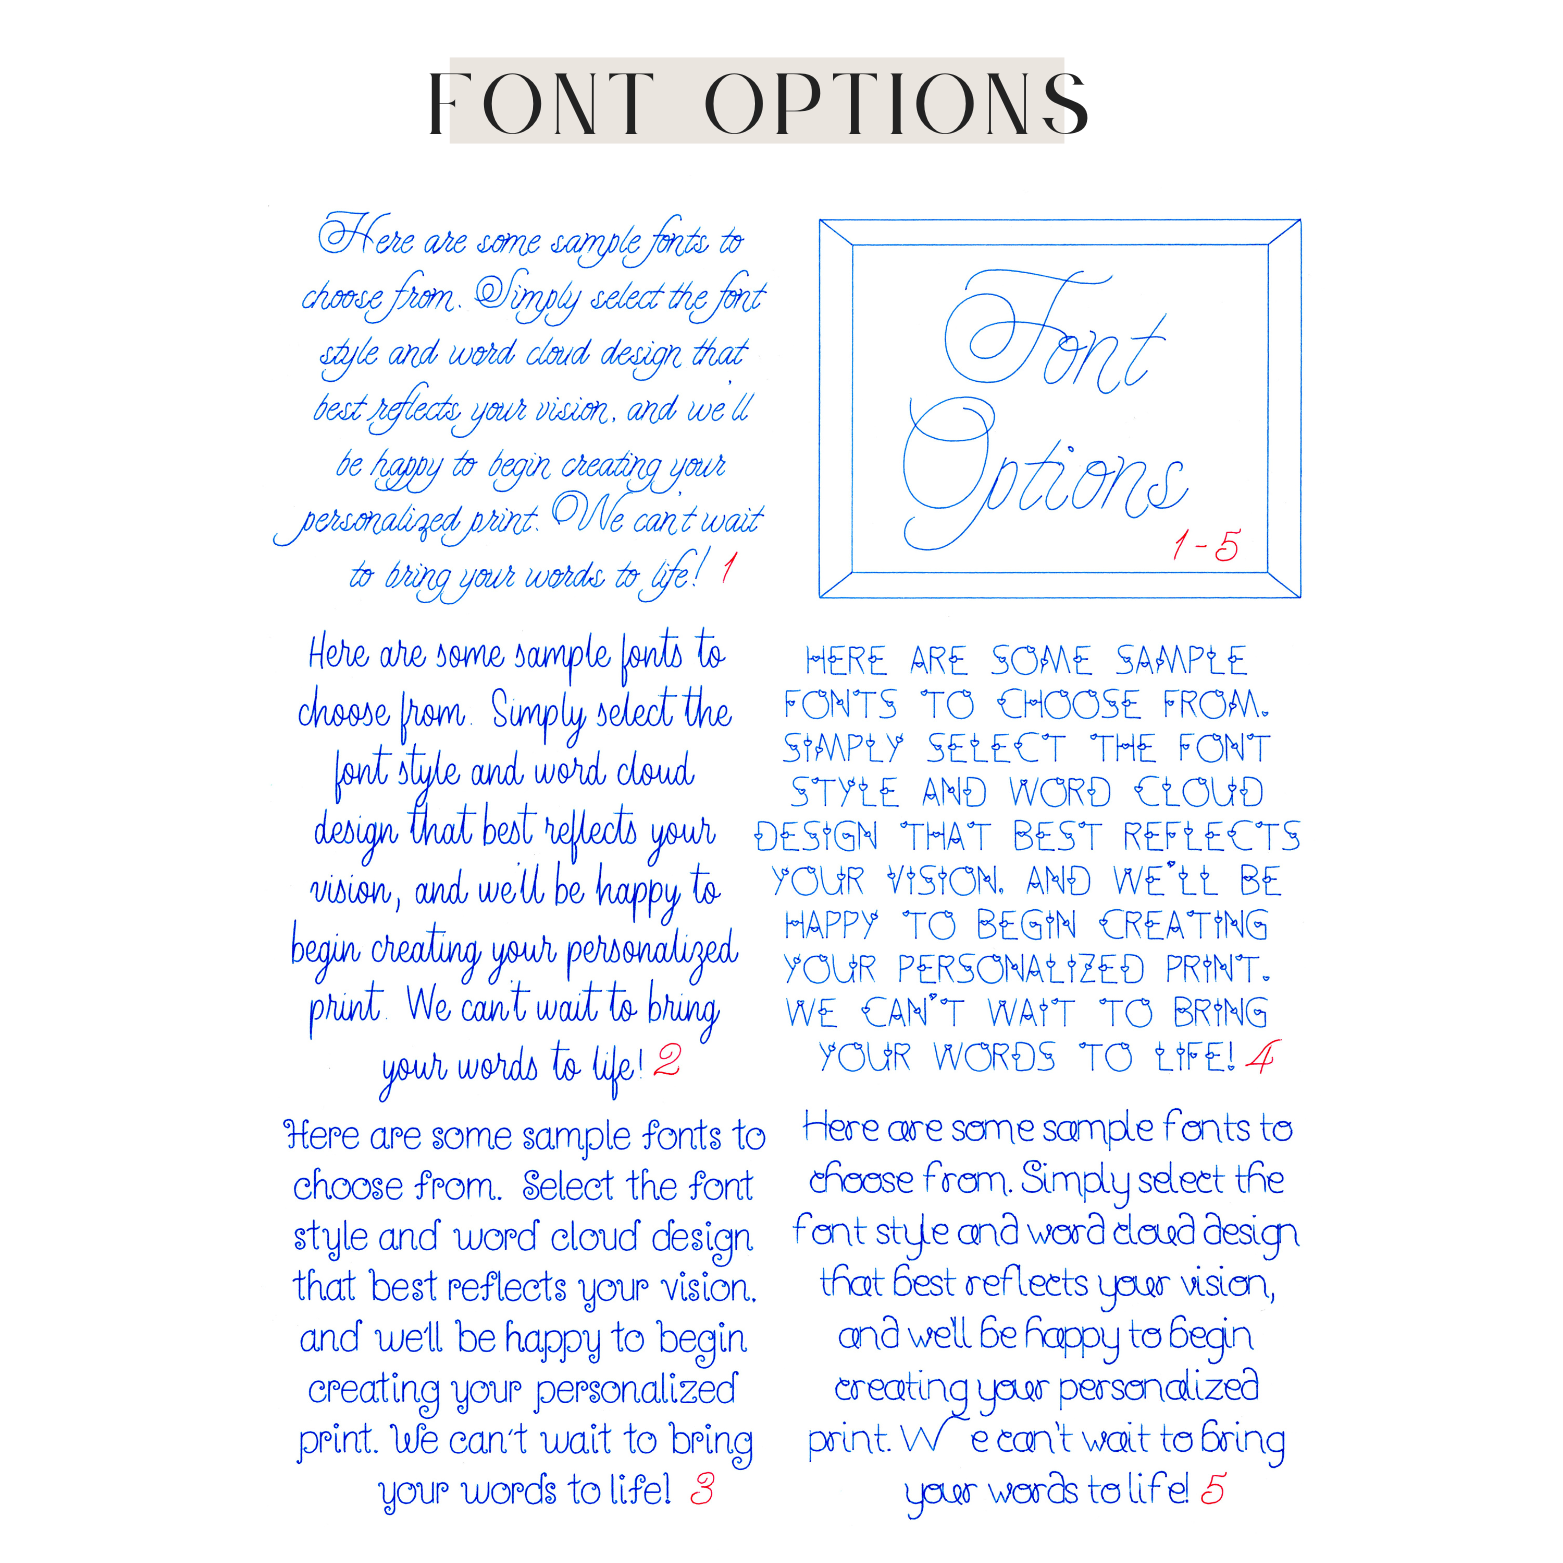 FONT OPTIONS
Here are some sample fonts to
choose from. Simply select the font
style and word cloud design that
best reflects your vision, and we'll
be happy to begin creating your
personalized print. We can't wait
to bring your words to life! 1
Font
Options
1-5
Here are some sample fonts to
choose from. Simply select the
font style and word cloud
design that best reflects your
vision, and we'll be happy to
begin creating your personalized
print. We can't wait to bring
your words to life! 2
HERE ARE SOME SAMPLE
FONTS TO CHOOSE FROM.
SIMPLY SELECT THE FONT
STYLE AND WORD CLOUD
DESIGN THAT BEST REFLECTS
YOUR VISION. AND WE'LL BE
HAPPY TO BEGIN CREATING
YOUR PERSONALIZED PRINT.
WE CAN'T WAIT TO BRING
YOUR WORDS TO LIFE! 4
Here are some sample fonts to
choose from. Select the font
style and word cloud design
that best reflects your vision.
and we'll be happy to begin
creating your personalized
print. We can't wait to bring
your words to life! 3
Here are some sample fonts to
choose from. Simply select the
font style and word cloud design
that best reflects your vision,
and we'll be happy to begin
creating your personalized
print. We can't wait to bring
your words to life! 5